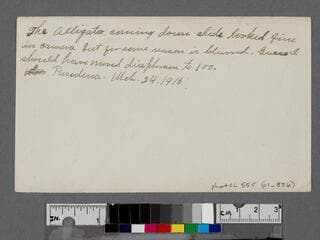 The Alligator coming down slide looked fine
in camera but for some reason is blurred. Guess I
should have moved diaphram to 100.
Pasadena. Mch. 24. 1916
photCL 555 (01_836)
IN 1 2 3
CM 1 2 3